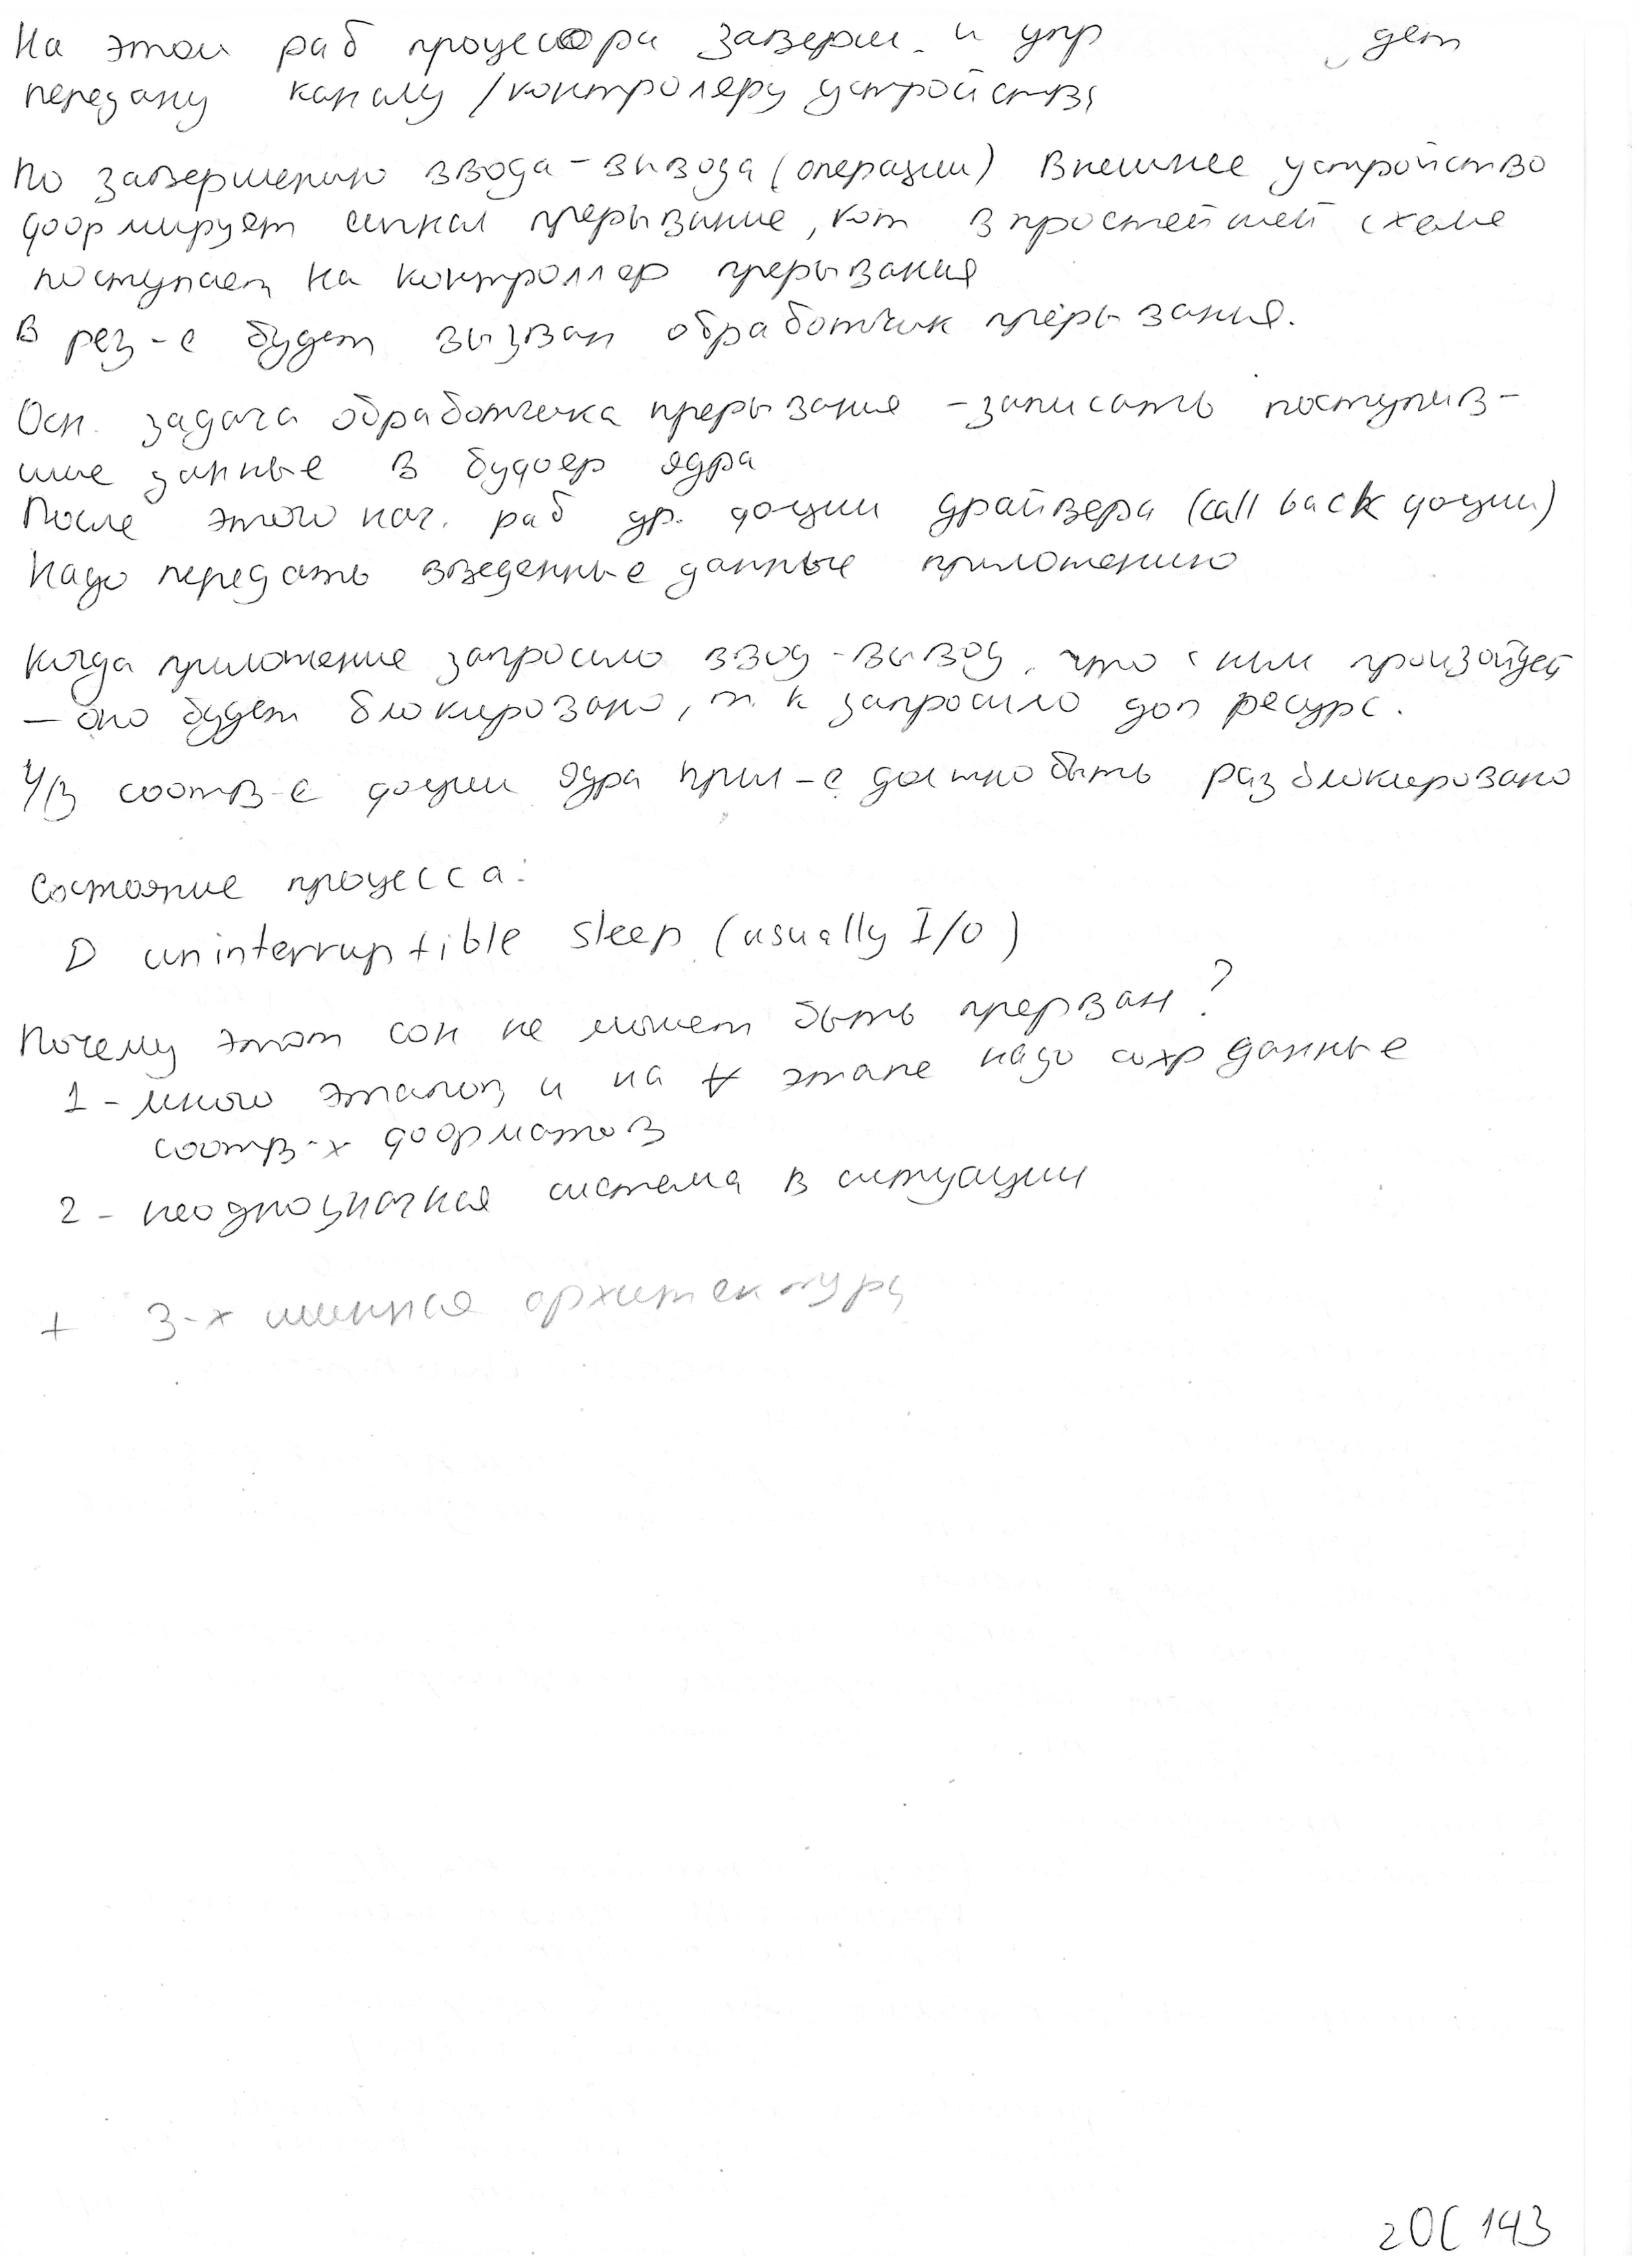 На этом раб процессора заверш. и упр дет
передану каналу /контролеру устройства
По завершению ввода-вывода (операции) внешнее устройство
формирует сигнал прерывание, кот в простейшей схеме
поступает на контроллер прерывания
В рез-е будет вызван обработчик прерывания.
Осн. задача обработчика прерывания - записать поступив-
шие данные в буфер ядра
После этого нач. раб др. фции драйвера (call back фции)
Надо передать введенные данные приложению
Когда приложение запросило ввод-вывод, что с ним произойдет
— оно будет блокировано, т к запросило доп ресурс.
Ч/з соотв-е фции ядра прил-е должно быть разблокировано
Состояние процесса:
D uninterruptible sleep (usually I/O)
Почему этот сон не может быть прерван?
1 - много этапов и на ∀ этапе надо сохр данные
соотв-х форматов
2 - неоднозначная система в ситуации
+ 3-х шинная архитектура
2ОС 143